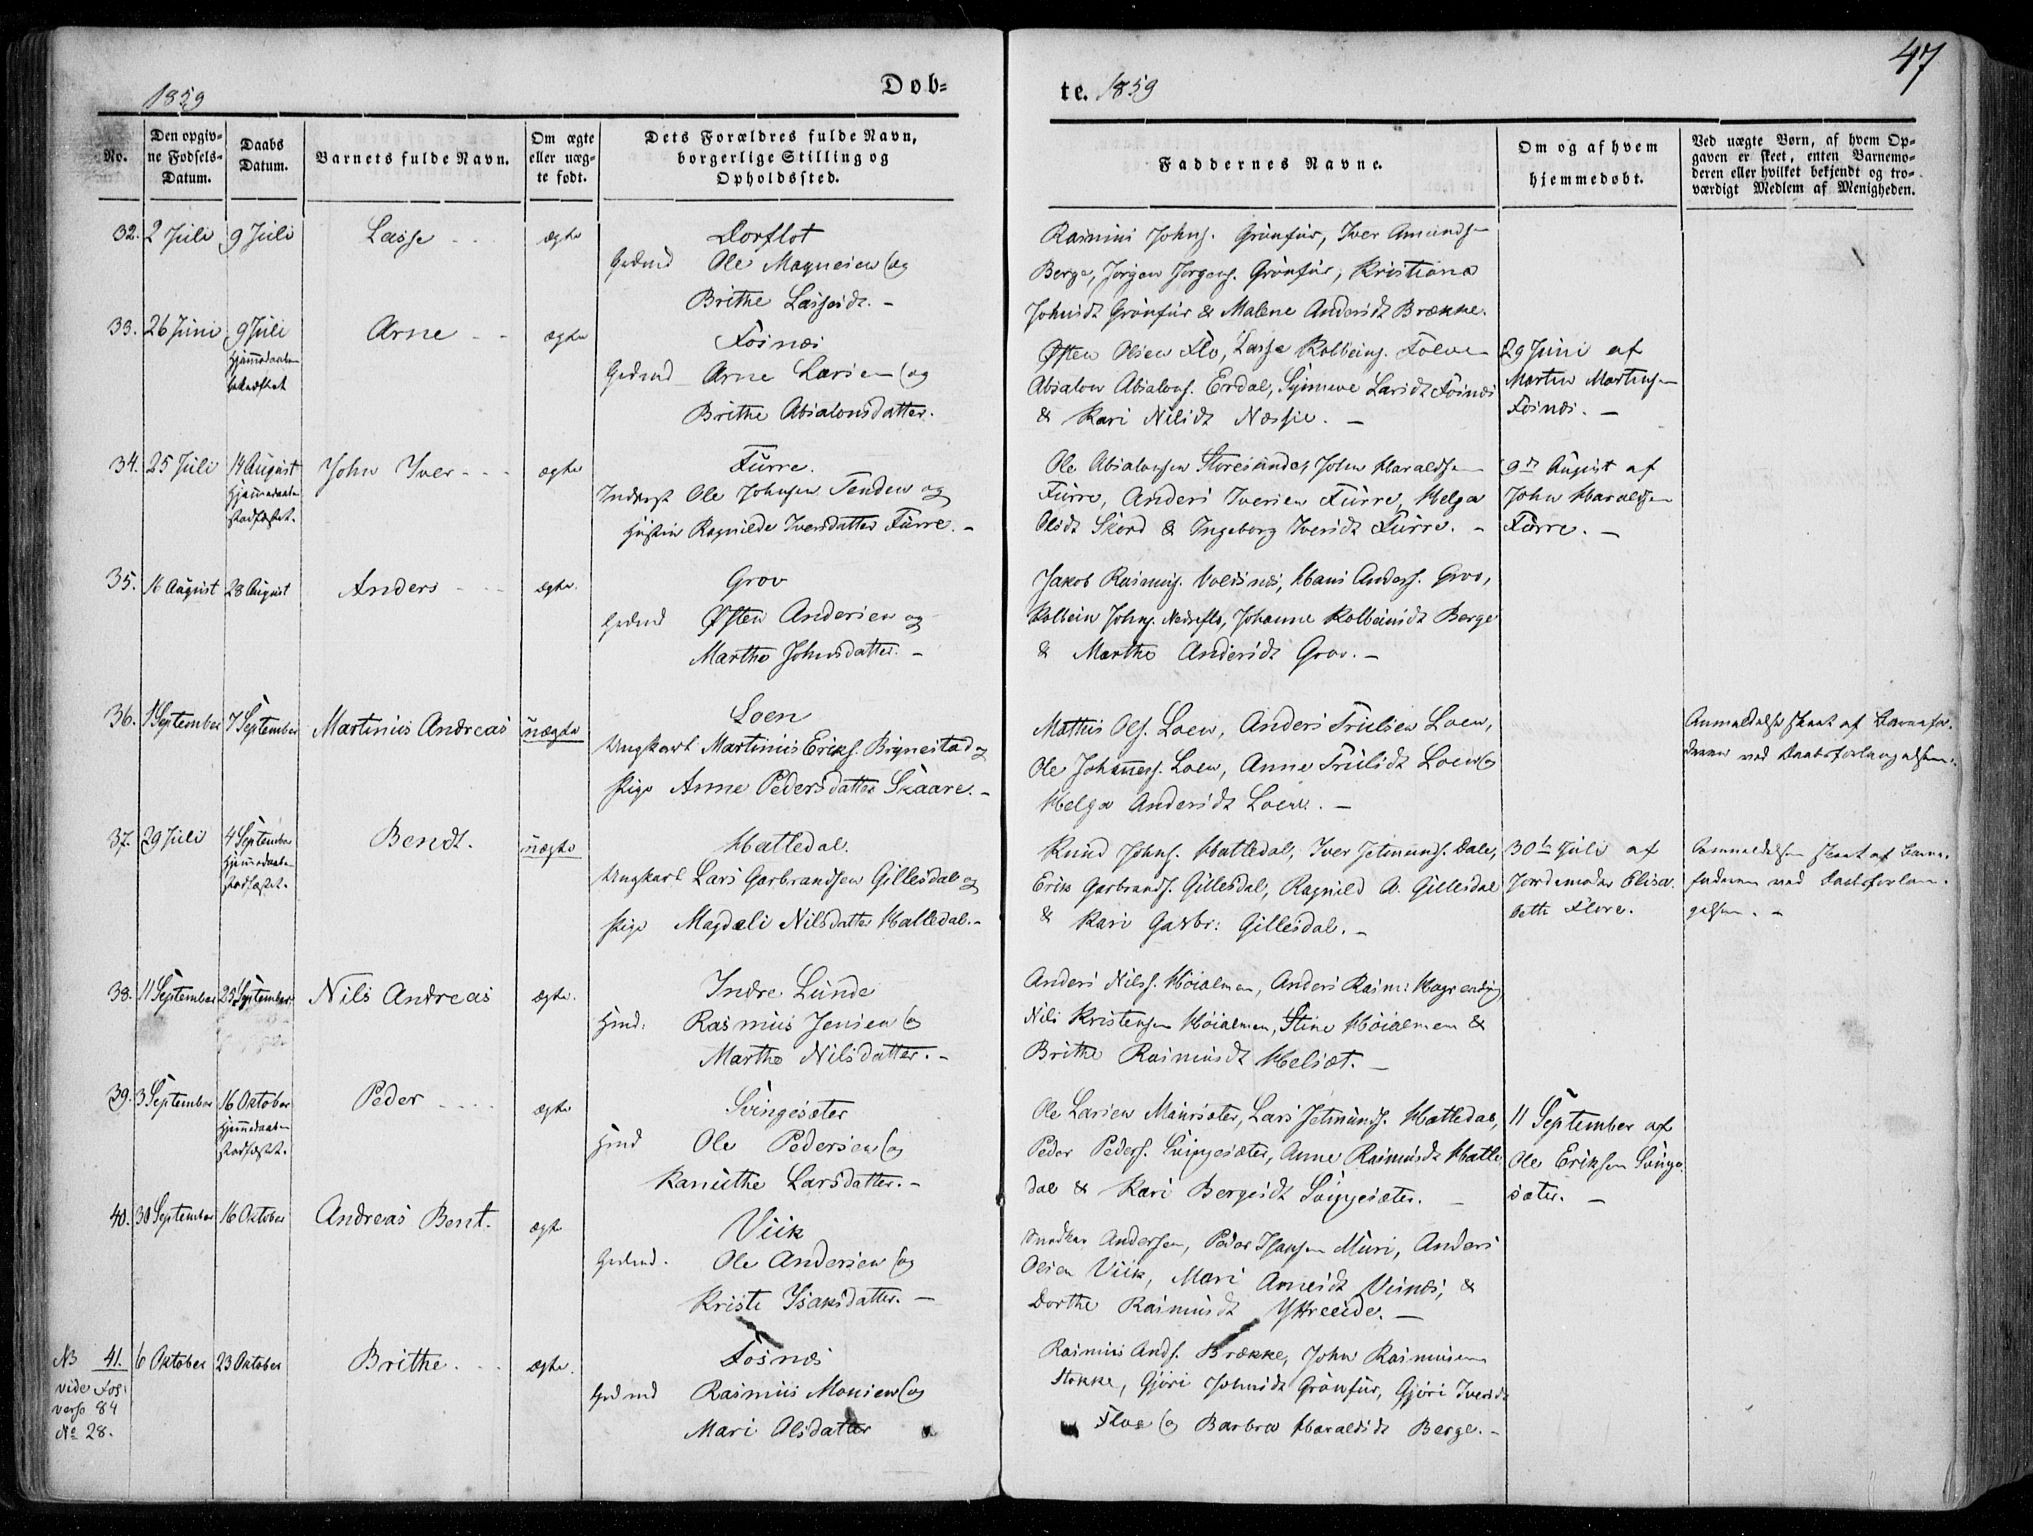 47
1859 Døb=
te. 1859
No.
Den opgiv=
ne Fødsels=
Datum.
Daabs
Datum.
Barnets fulde Navn.
Om ægte
eller uæg=
te født.
Dets Forældres fulde Navn,
borgerlige Stilling og
Opholdssted.
Faddernes Navne.
Om og af hvem
hjemmedøbt.
Ved uægte Børn, af hvem Op=
gaven er skeet, enten Barnemo=
deren eller hvilket bekjendt og tro=
værdigt Medlem af Menigheden.
32. 2 Juli 9 Juli Lasse ægte Dorflot
Gdmd Ole Magnesen og
Brithe Lassesdt.
Rasmus Johns. Grönfur, Iver Amunds
Berge, Jørgen Jorgens. Grönfur, Kristiana
Johnsdt Grönfur & Malene Andersdt Brække.
33. 26 Juni 9 Juli Arne ægte Fosnæs
Hjemmedaaben
bekræftet
Gdmd Arne Larsen og
Brithe Absalonsdatter.
Østen Olsen Flo, Lasse Kolbeins. Folven
Absalon Absalons. Erdal, Synneve Larsdt Fosnæs
& Kari Nilsdt Næssje.
29 Juni af
Morten Mortensen
Fosnæs.
34. 25 Juli 14 August John Iver ægte Furre.
Hjemmedaaben
stadfæstet.
Inderst Ole Johnsen Tenden og
Hustru Ragnilde Iversdatter Furre.
Ole Absalonsen Storesunde, John Haraldsen
Furre, Anders Iversen Furre, Helga
Olsdt Skord & Ingeborg Iversdt Furre.
9de August af
John Haraldsen
Furre.
35. 16 August 28 August Anders ægte. Grov
Gdmd Østen Andersen og
Marthe Johnsdatter.
Jakob Rasmus. Voldsnæs, Hans Anders. Grov,
Kolbein Johns. Nedreflo, Johanne Kolbeinsdt Berge
& Marthe Andersdt Grov.
36. 1 September 7 September Martinus Andreas uægte Loen
Ungkarl Martinus Eriks. Brynestad og
Pige Anne Pedersdatter Skaare.
Mathis Ols. Loen, Anders Trulsen Loen,
Ole Johanness. Loen, Anne Trulsdt Loen og
Helga Andersdt Loen.
Anmeldelse skeet af Barnefa-
deren ved Daabsforlangelsen.
37. 29 Juli 4 September Bendt. uægte Hatledal.
Hjemmedaaben
stadfæstet.
Ungkarl Lars Garbrandsen Gillesdal og
Pige Magdeli Nilsdatter Hatledal.
Knud Johns. Hatledal, Iver Jetmunds. Dale,
Erik Garbrands. Gillesdal, Ragnild A. Gillesdal
& Kari Garbr: Gillesdal.
30te Juli af
Jordemoder Elisa-
beth Flore.
Anmeldelsen skeet af Barne-
faderen ved Daabsforlan-
gelsen.
38. 11 September 25 September Nils Andreas ægte. Indre Lunde
Hmd: Rasmus Jensen og
Marthe Nilsdatter.
Anders Nilss. Höialmen, Anders Rasm:
Nils Kristensen Höialmen, Stine Höialmen &
Brithe Rasmusdt Melsæt.
39. 3 September 16 Oktober Peder ægte Svingesæter
Hjemmedaaben
stadfæstet.
Hmd Ole Pedersen og
Kanuthe Larsdatter.
Ole Larsen Maursæter, Lars Jetmunds. Hatledal,
Peder Peders. Svingesæter, Anne Rasmusdt Hatle-
dal & Kari Bergesdt Svingesæter.
11 September af
Ole Eriksen Svinge-
sæter.
40. 30 September 16 Oktober Andreas Bent. ægte Viik
Gdmd. Ole Andersen og
Kriste Isaksdatter.
Andersen, Peder Isaksen Muri, Anders
Olsen Viik, Mari Arnesdt Visnæs, &
Dorthe Rasmusdt Yttreeide.
NB 41. 6 Oktober 23 Oktober Brithe ægte. Fosnæs
vide Fol:
verso 84
No 28.
Gdmd Rasmus Monsen og
Mari Olsdatter
Rasmus Ands. Brække, John Rasmusen
Stokke, Gjöri Johnsdt Grönfur, Gjöri Iversdt
Floe og Barbra Haraldsdt Berge.